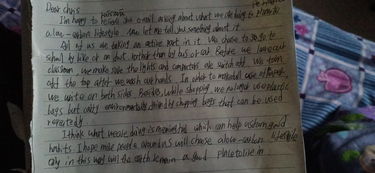 Dear Chris
I'm happy to receive your e-mail asking about what we are doing to
a low-carbon lifestyle. Now let me tell you something about it.
All of us are taking an active part in it. We chose to go to
school by bike or on foot rather than by bus or car. Before we leave our
classroom, we make sure the lights and computers are switch off. We turn
off the tap after we wash our hands. In order to make full use of paper
we write on both sides. Besides, while shopping, we not use plastic
bags but only environmentally friendly shopping bags that can be used
repeatedly.
I think what we are doing is meaningful which can help us form good
habits. I hope more people around us will chose a low-carbon lifestyle
only in this way will the earth remain a good place to live in